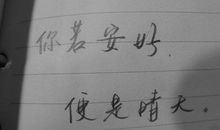 你若安好.
便是晴天.